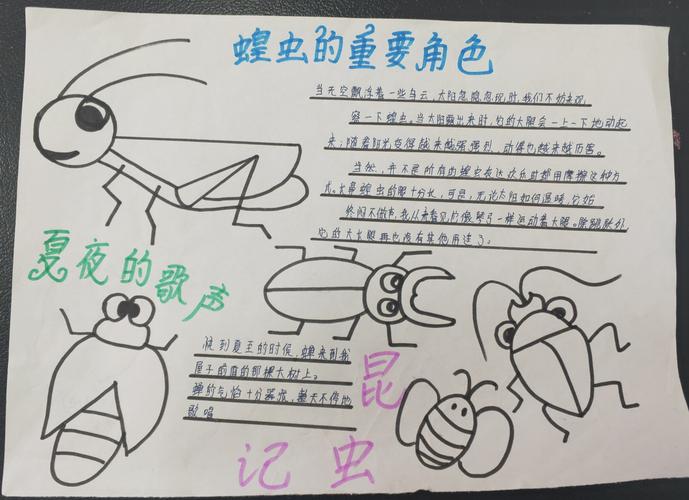 蝗虫的重要角色
当天空飘浮着一些乌云,太阳忽隐忽现时,我们不妨来观
察一下蝗虫。当太阳露出来时,它的大腿会一上一下地动起
来;随着阳光变得越来越强烈,动得也越来越厉害。
当然,并不是所有的蝗虫表达欢乐时都用摩擦这种方
式。大鼻蝗虫的腿十分长,可是,无论太阳如何温暖,它始
终闷不做声。我从来看见它像提琴弓一样运动着大腿。除跳跃外,
它的大长腿再也没有其他用途了。
夏夜的歌声
候到夏至的时候,蝉来到我
屋子前面的那棵大树上。
蝉的气焰十分嚣张,整天不停地
歌唱
昆
记 虫